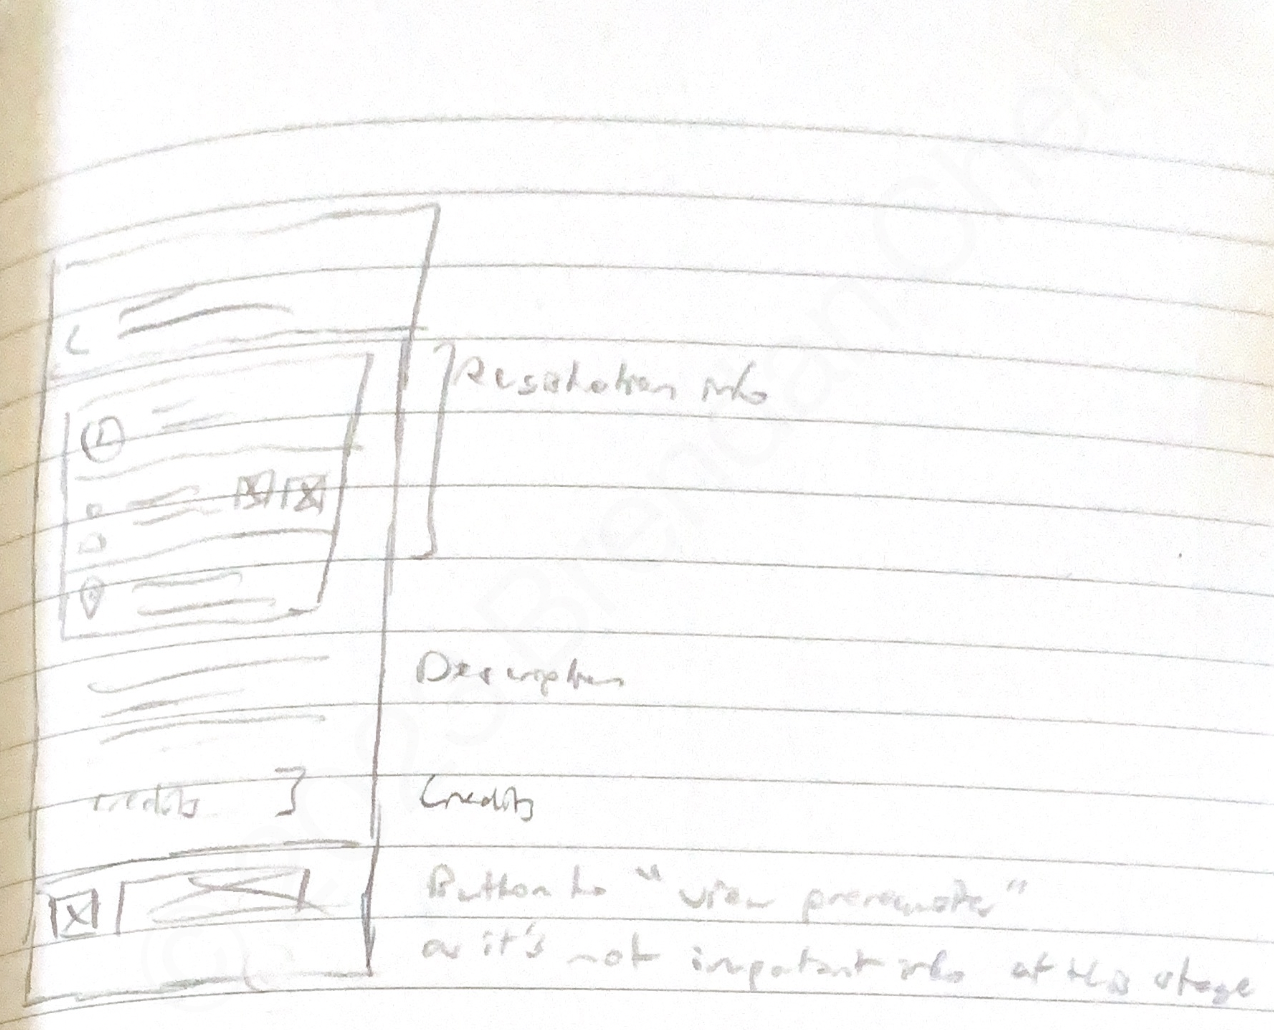 Registration info
Description
credits 3
Credits
Button to "view prerequisites"
as it's not important info at this stage